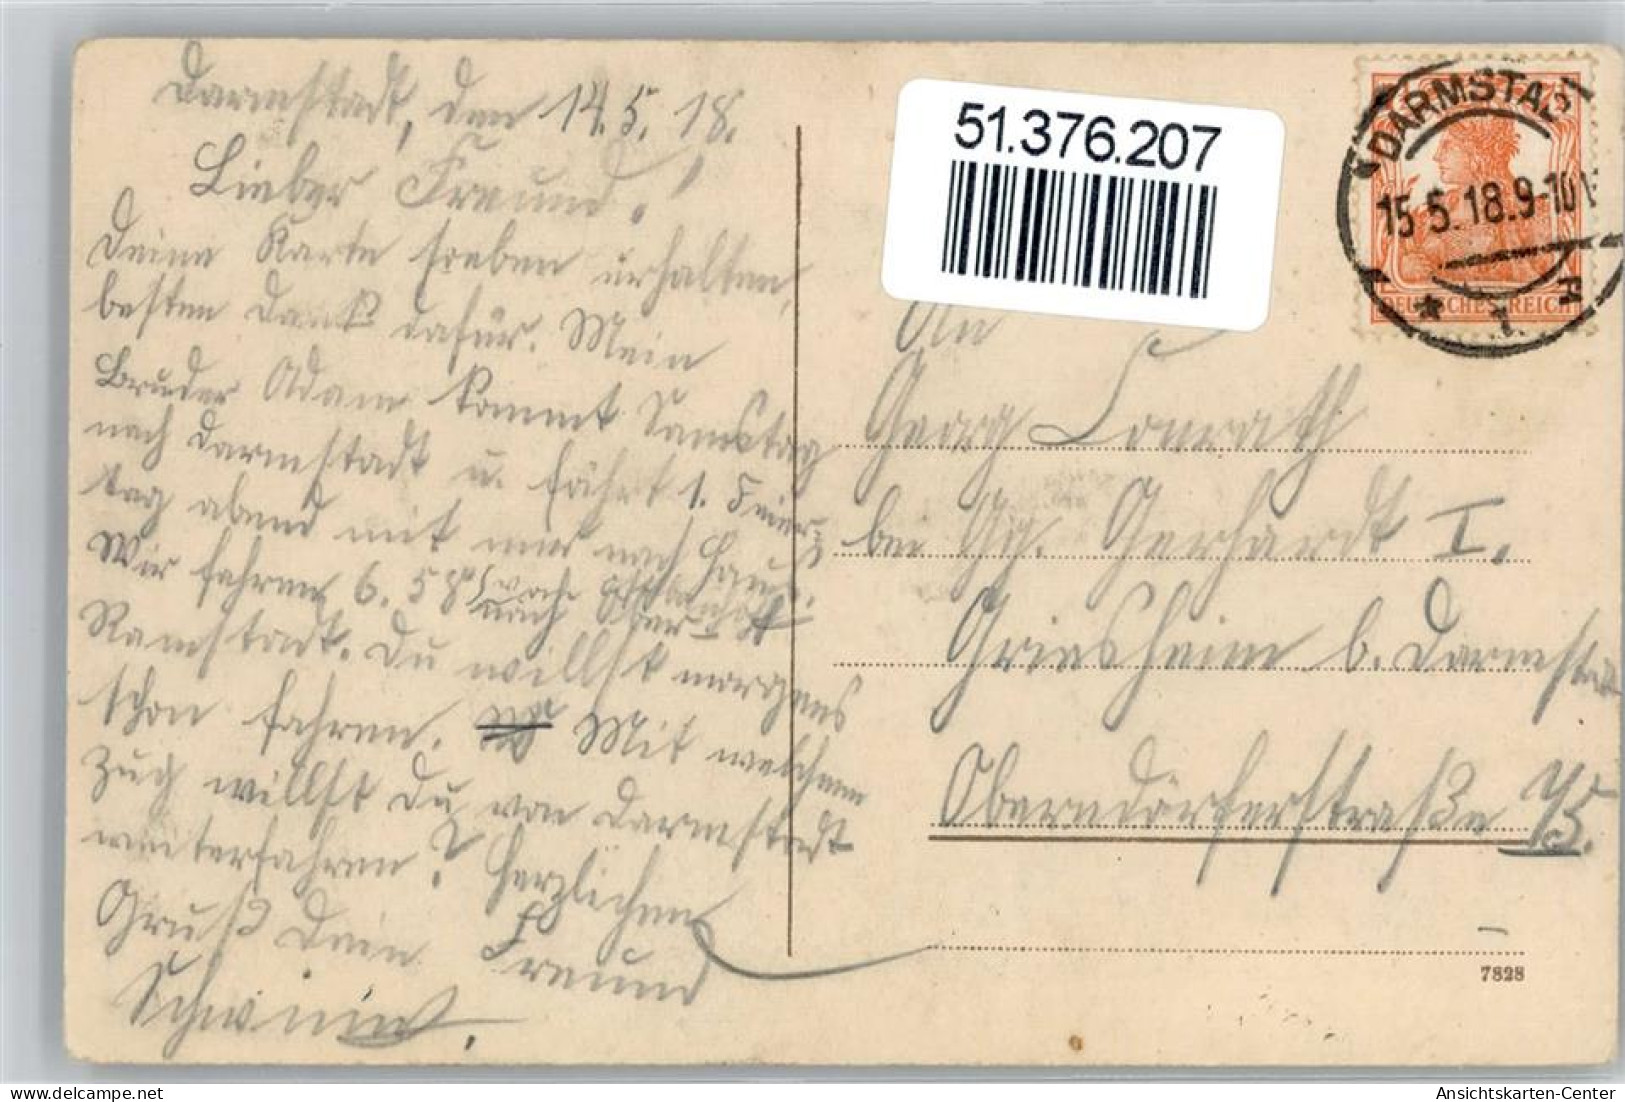 Darmstadt, den 14.5.18.
Lieber Freund!
Deine Karte soeben erhalten,
besten Dank dafür. Mein
Bruder Adam kommt Samstag
nach Darmstadt u. fährt 1. Feier-
tag abend mit mir nach Haus.
Wir fahren 6.58
nach Ober-
Ramstadt. Du willst morgens
schon fahren. Mit welchem
Zug willst Du von Darmstadt
weiterfahren? Herzlichen
Gruß Dein Freund
51.376.207
DARMSTADT
15.5.18.9-10V
* 1. R
DEUTSCHES REICH
An
Georg Conrath
bei Gg. Gerhardt I.
Griesheim b. Darmstadt
Oberndörferstraße 75.
7828
Ansichtskarten-Center